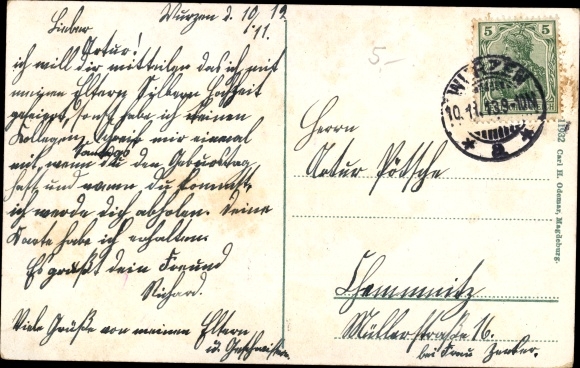 Wurzen d. 10/11. 13
Lieber
Artur!
ich will dir mitteilen das ich mit
meinen Eltern Silbern Hochzeit
gefeiert, sonst habe ich keinen
Kollegen, schreib mir einmal
mit, wenn du den Geburtstag
hast und wann du kommst,
ich werde dich abholen. Deine
Karte habe ich erhalten.
Es grüßt dein Freund
Richard.
Viele Grüße von meinen Eltern
u. Geschwistern.
5-
5 5
WURZEN
10.11.13.9-10N
* a *
Herrn
Artur Pötsche
Chemnnitz
Müllerstraße 16.
bei Frau Zerber.
11932 Carl H. Odemar, Magdeburg.